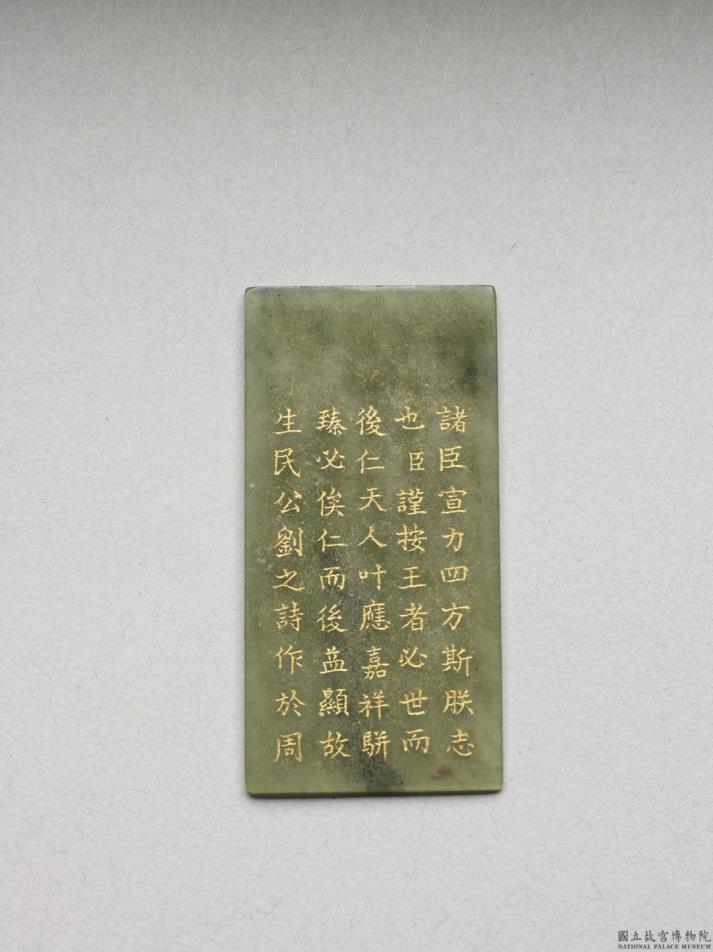 諸臣宣力四方斯朕志
也臣謹按王者必世而
後仁天人叶應嘉祥駢
臻必俟仁而後益顯故
生民公劉之詩作於周
國立故宮博物院
NATIONAL PALACE MUSEUM